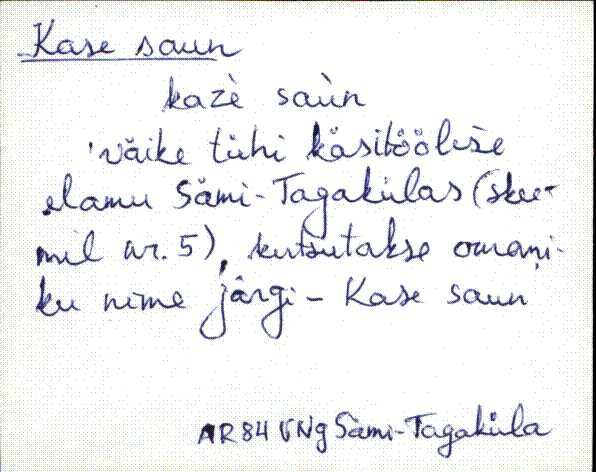 Kase saun
kazè saùn
'väike tühi käsitöölise
elamu Sämi-Tagakülas (skee-
mil nr. 5), kutsutakse omani-
ku nime järgi - Kase saun
AR 84 VNg Sämi-Tagaküla